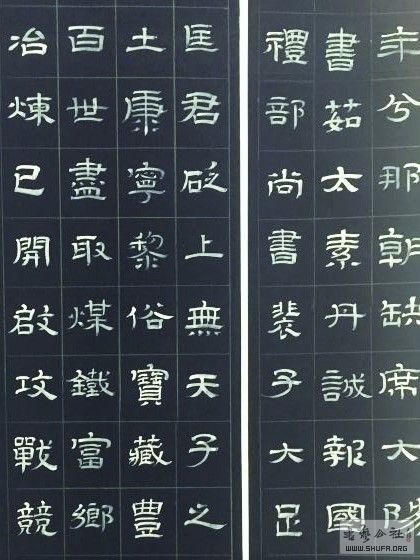 兮那朝缺席大
書茹太素丹誠報國
禮部尚書裴子大
匡君砭上無天子之
土康寧黎俗寶藏豐
百世盡取煤鐵富鄉
冶煉已開啟攻戰競
WWW.SHUFA.ORG